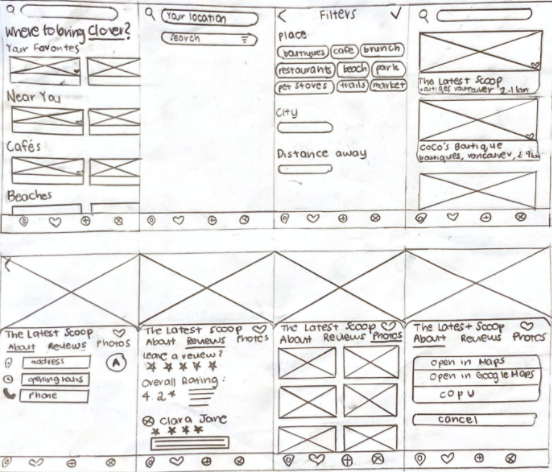 Where to bring Clover?
Your Favourites
Near You
Cafés
Beaches
Your location
Search
Filters
Place
boutiques café brunch
restaurants beach park
pet stores trails market
City
Distance away
The Latest Scoop
vancouver 2.1 km
Coco's Boutique
boutiques, vancouver, 2.9km
The Latest Scoop
About Reviews Photos
address
opening hours
Phone
A
The Latest Scoop
About Reviews Photos
Leave a review?
Overall Rating:
4.2
Clara Jane
The Latest Scoop
About Reviews Photos
The Latest Scoop
About Reviews Photos
open in Maps
open in Google Maps
copy
cancel